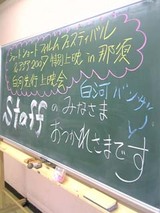 ショートショートフィルムフェスティバル
アジア2007特別上映 in 那須
白河先行上映会
白河
Staffのみなさま
おつかれさまです